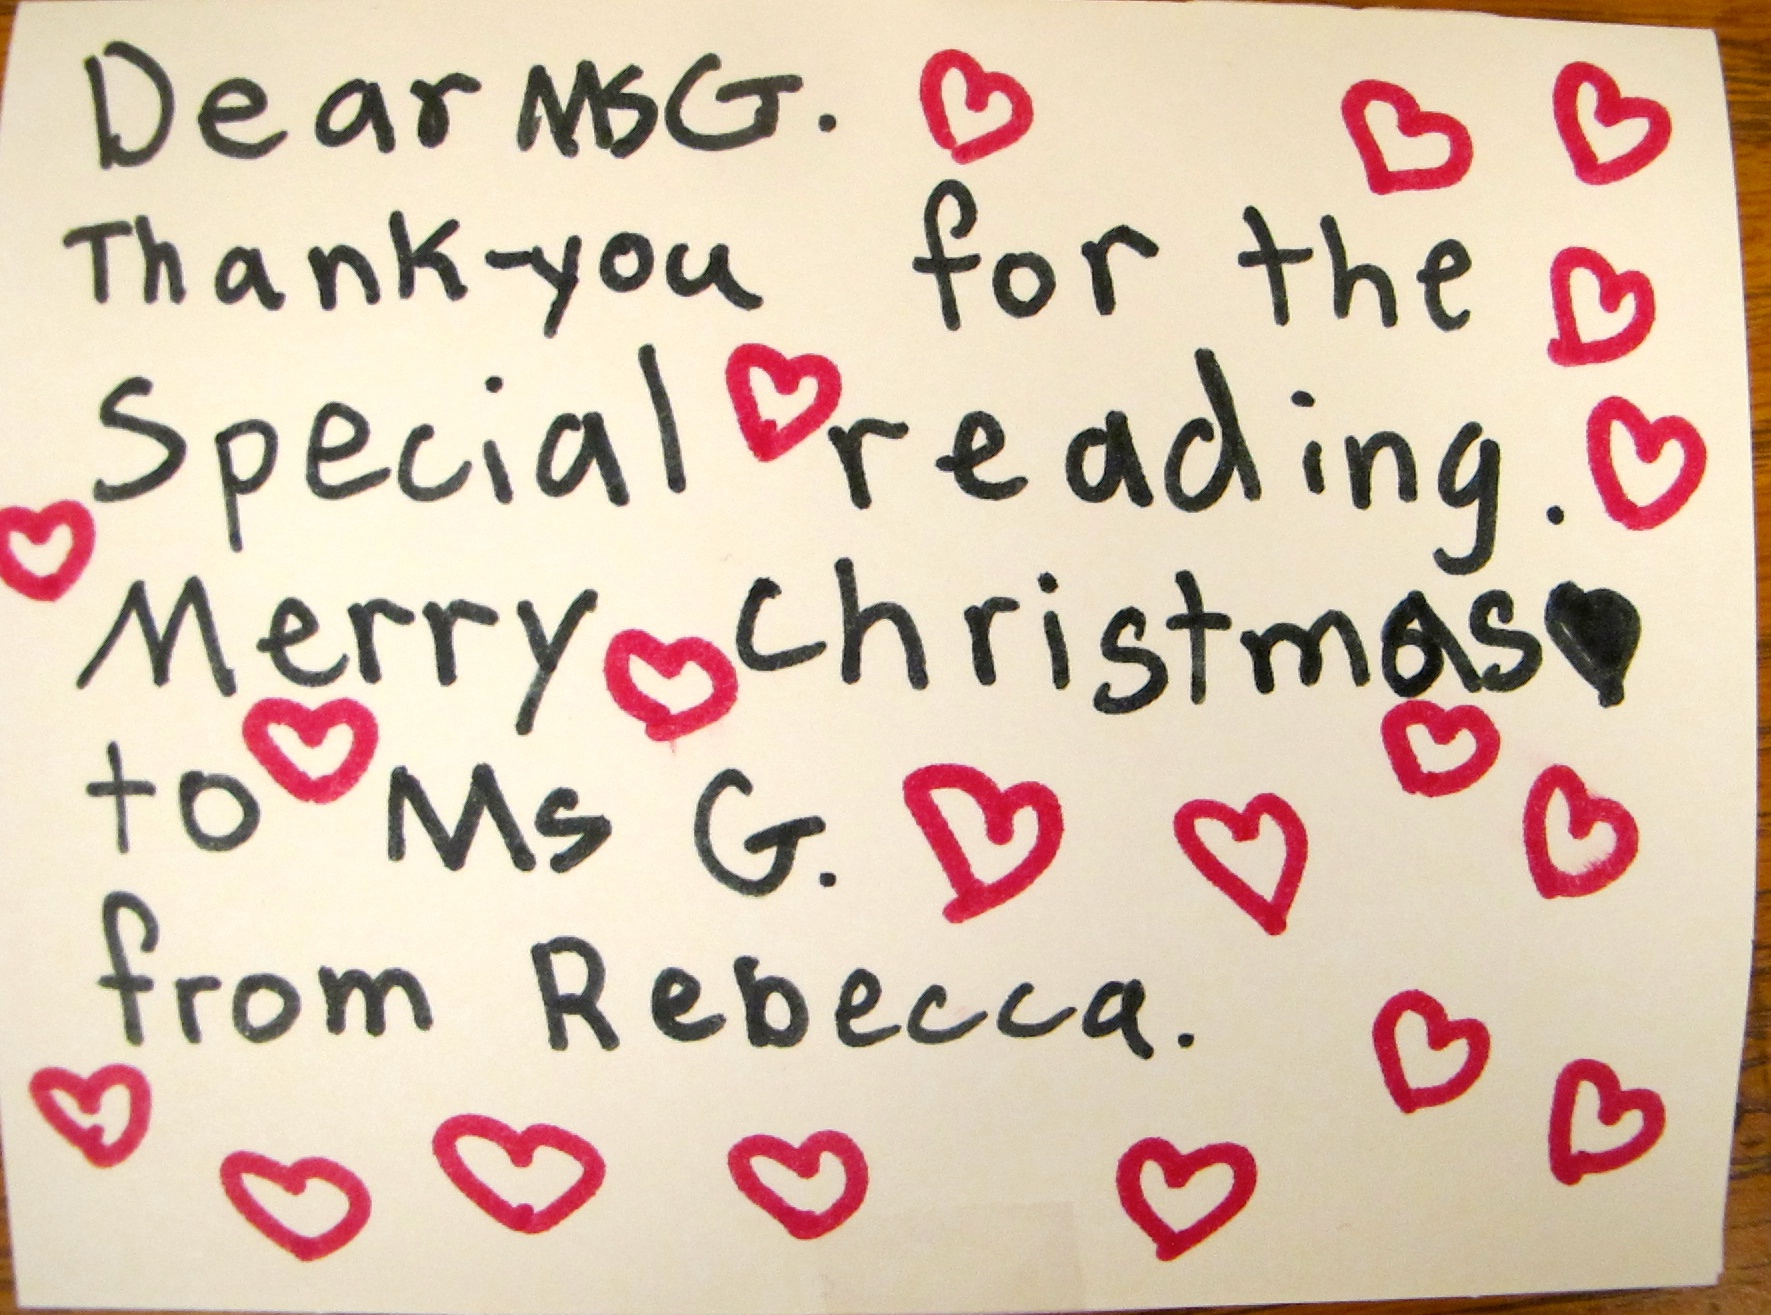 Dear Ms G.
Thank-you for the
Special reading.
Merry christmas
to Ms G.
from Rebecca.